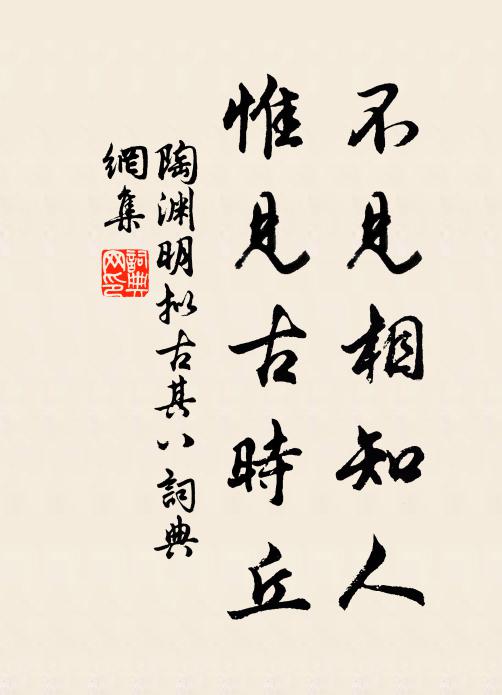 不見相知人
惟見古時丘
陶淵明拟古其八 詞典
網集
詞典
网印